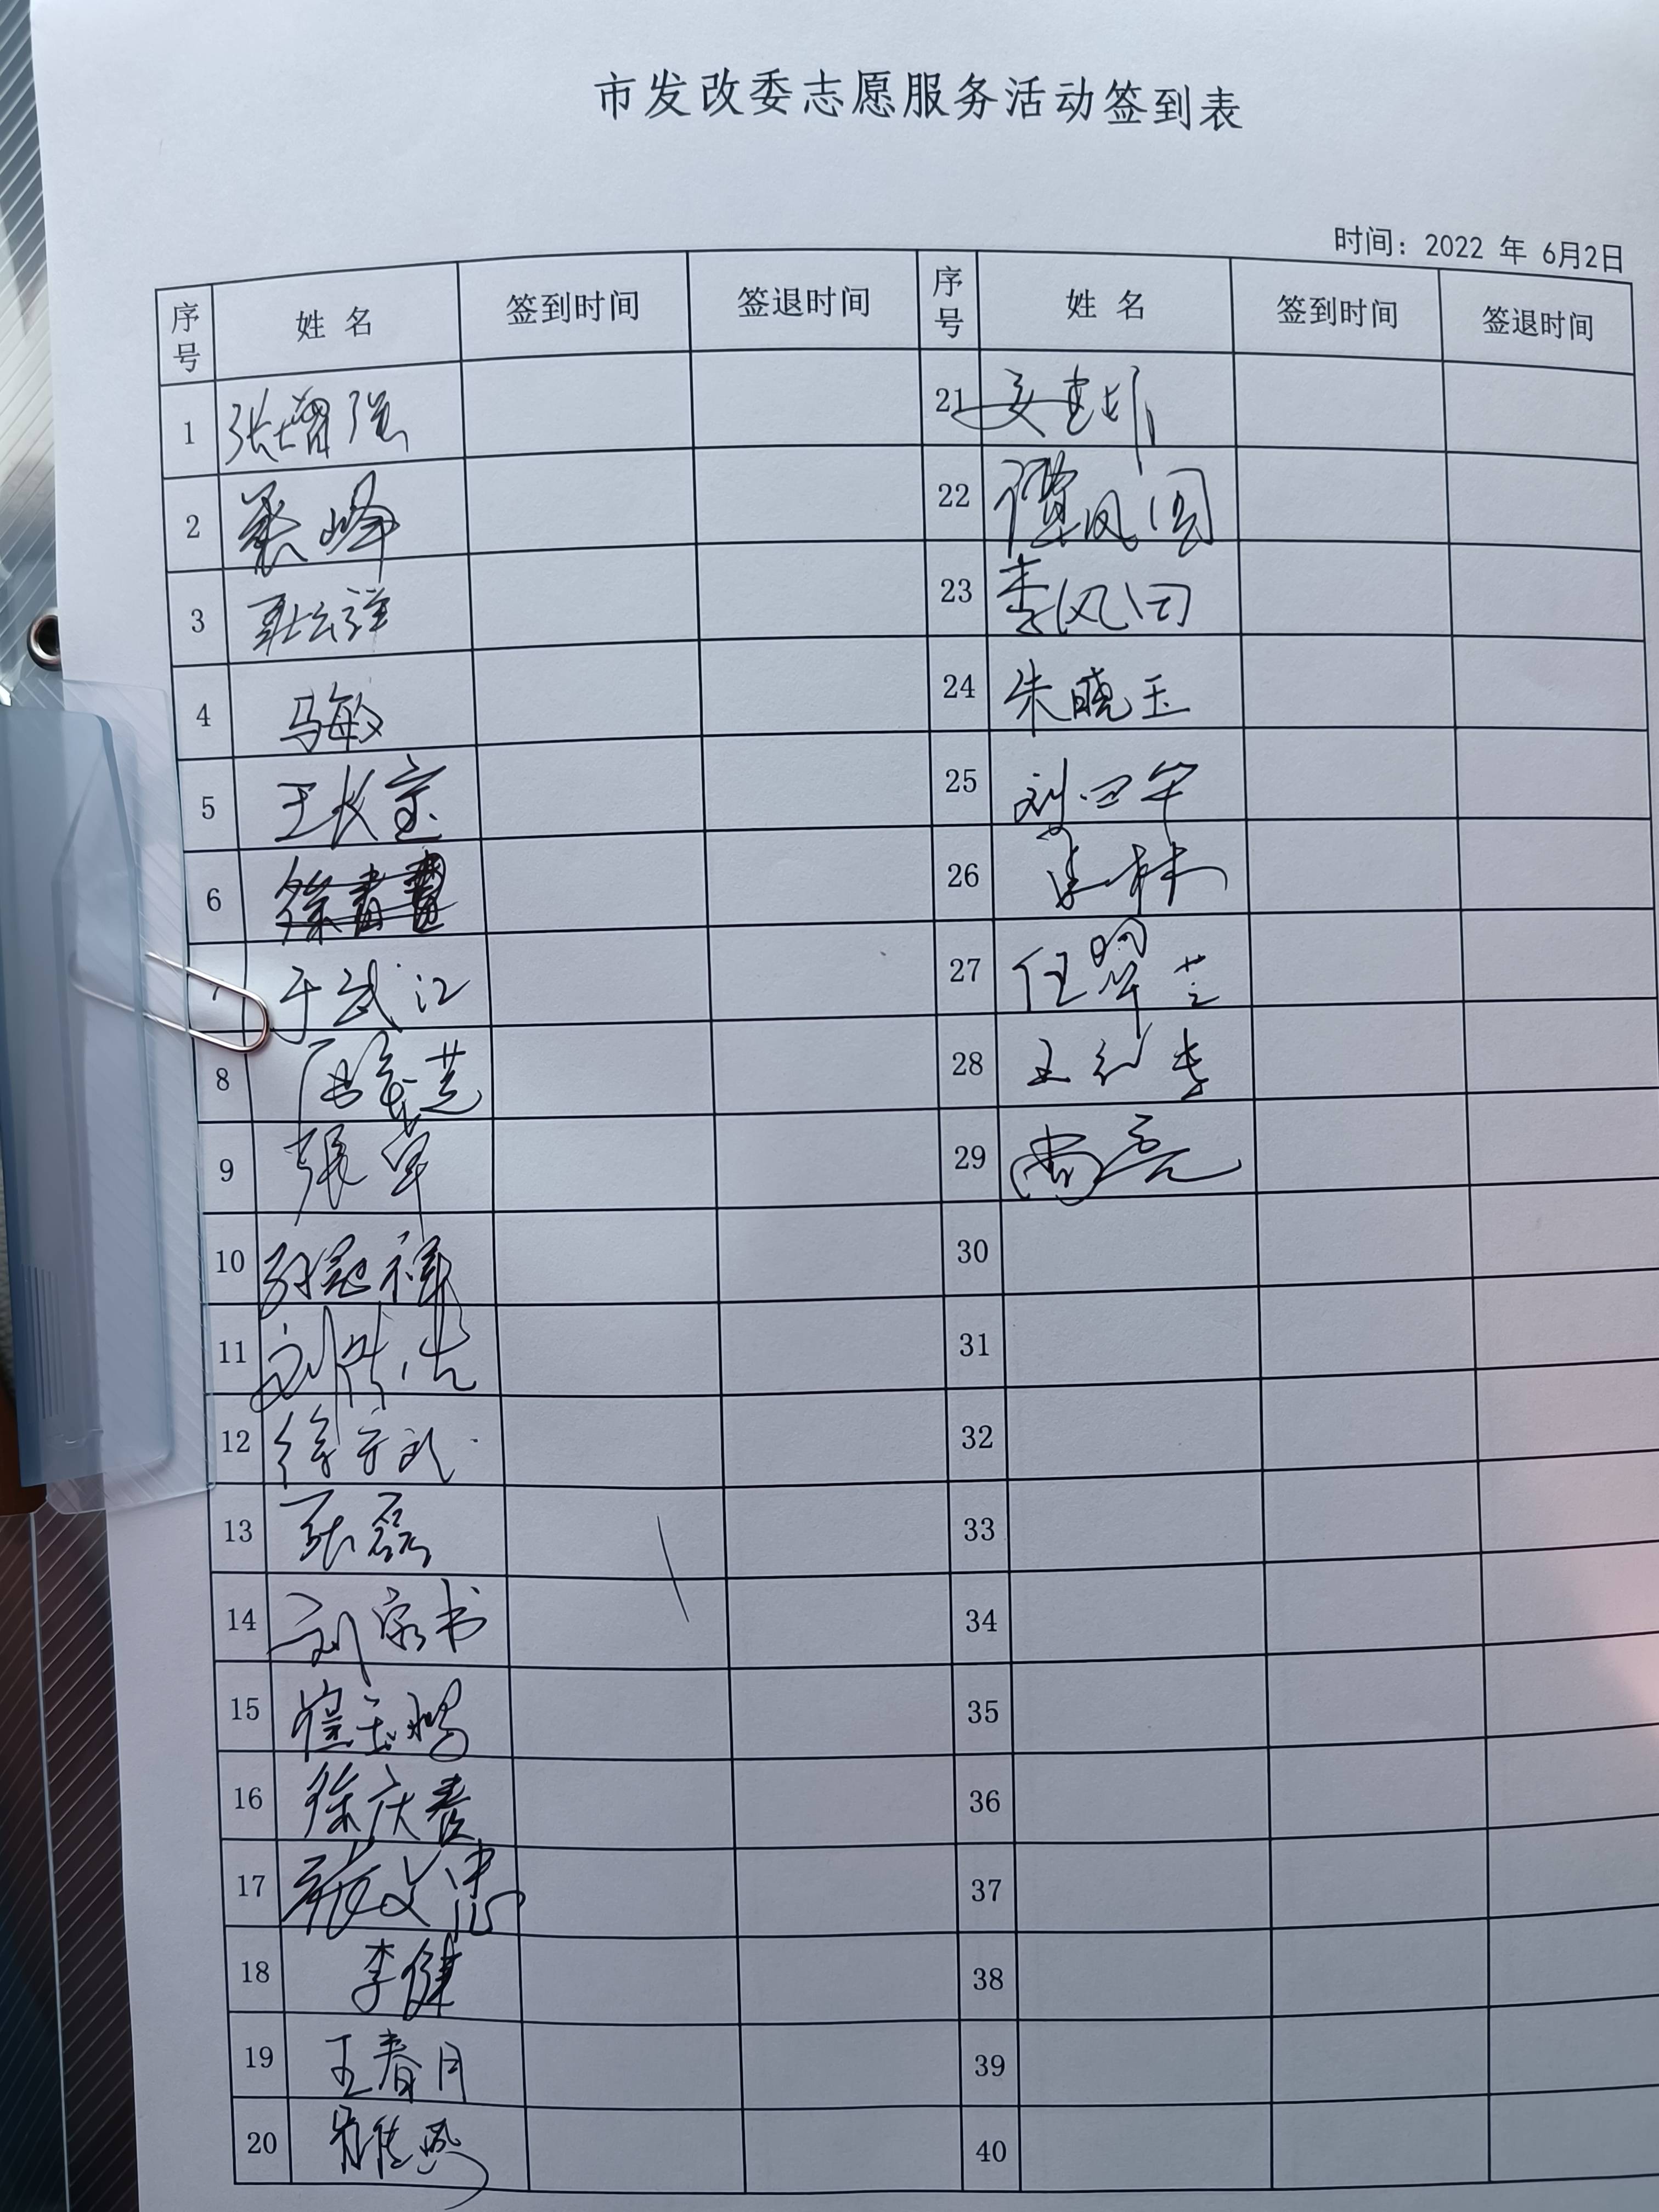 市发改委志愿服务活动签到表
时间：2022 年 6月2日
序号 姓 名 签到时间 签退时间 序号 姓 名 签到时间 签退时间
1 张增强 21
2 峰 22 谭凤国
3 24 朱晓玉
4 马敏 23 李风
5 王长宝 25 刘
6 徐 26 林
7 于武江 27 任翠芝
8 芝 28 王红
9 张军 29 尚亮
10 孙冠祥 30
11 刘洪 31
12 徐 32
13 张磊 33
14 刘家书 34
15 崔玉鹏 35
16 徐庆春 36
17 张文忠 37
18 李健 38
19 王春月 39
20 40